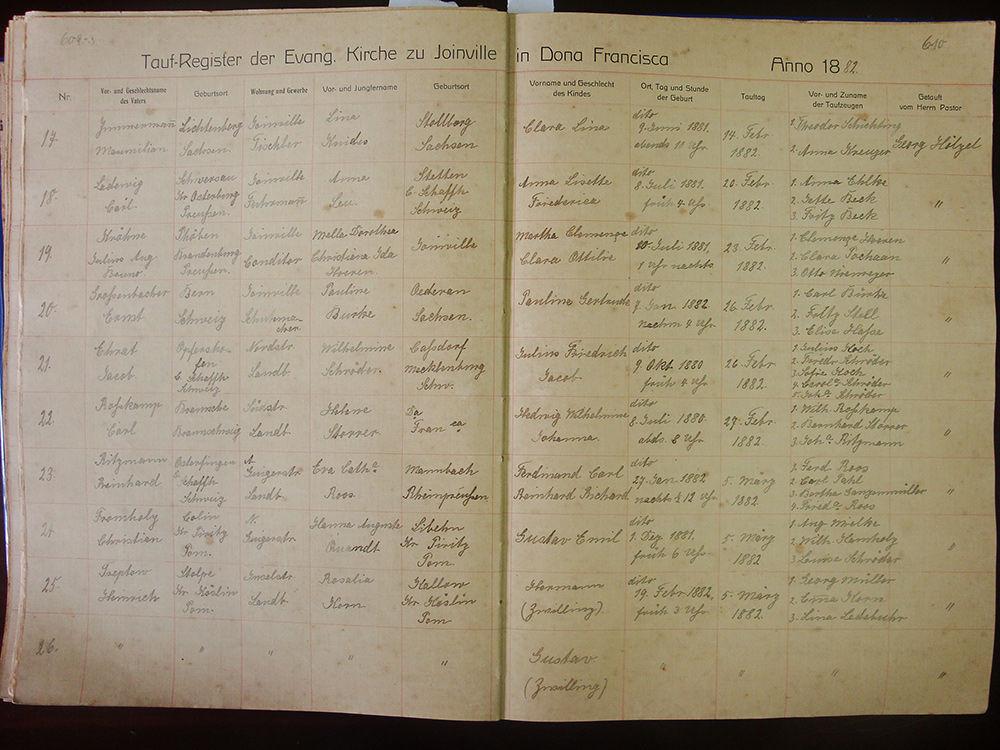 609-3
610
Tauf-Register der Evang. Kirche zu Joinville in Dona Francisca Anno 1882.
Nr. Vor- und Geschlechtsname des Vaters Geburtsort Wohnung und Gewerbe Vor- und Jungfername Geburtsort Vorname und Geschlecht des Kindes Ort, Tag und Stunde der Geburt Tauftag Vor- und Zuname der Taufzeugen Getauft vom Herrn Pastor
17. Zimmermann Lichtenberg Joinville Lina Stollberg Clara Lina dito 1. Theodor
Maximilian Sachsen. Tischler Sachsen 9. Juni 1881. abends 11 Uhr 14. Febr 1882. 2. Anna Kreuzer Georg Hölzel
18. Ledwig Joinville Anna Stetten Anna Lisette dito 1. Anna Ehlke
Carl Kr Osterburg Fuhrmann Leu. C. Schaffh. Friederica 8. Juli 1881. 20. Febr 2. Jette Beck "
Preußen. Schweiz früh 4 Uhr 1882. 3. Fritz Beck
19. Krühne Joinville Melle Dorothea Joinville Martha Clemenze dito 1. Clemenze
Julius Aug Brandenburg Conditor Christiera Ida Clara Ottilie 20. Juli 1881. 23. Febr 2. Clara "
Bruno Preußen. 1 Uhr nachts 1882. 3. Otto
20. Großenbacher Bern Joinville Pauline Oederan Pauline Gertrude dito 1. Carl Bürke
Ernst Schweiz Schuhmacher Burke Sachsen. 7. Jan. 1882. 26. Febr 2. Stoll "
nachm 4 Uhr 1882. 3. Elise Hasse
21. Ehrat Opfershofen Nordstr. Wilhelmine Cassdorf Julius Friedrich dito 1. Julius Koch
Jacob C. Schaffh Landt. Schröder. Mecklenburg Jacob 9. Okt. 1880 26. Febr 2. Friedr. Schröder
Schweiz Schw. früh 4 Uhr 1882. 3. Sofie Koch "
4. Carol^a Schröder
5. Joh^a Schröder
22. Roßkamp Braunsche Südstr. Helene Da Hedwig Wilhelmine dito 1. Wilh. Roßkamp
Carl Braunschweig Landt. Storrer Fran^ca Johanna 8. Juli 1880. 27. Febr 2. Bernhard Storrer "
abds. 8 Uhr 1882. 3. Joh^a Ritzmann
23. Ritzmann Osterfingen N. Eva Cath^a Mannbach Ferdinand Carl dito 1. Ferd Roos
Reinhard C. Schaffh Roos Rheinpreußen Reinhard Richard 27. Jan. 1882 5. März 2. Carl Pahl
Schweiz Landt. nachts ½ 12 Uhr 1882 3. Bertha Ganzenmüller "
4. Fried^a Roos
24. Fromholz Colin N. Hanna Auguste Libehn Gustav Emil dito 1. Aug Mielke
Christian Kr. Pyritz Quandt Kr Piritz 1. Dez 1881. 5. März 2. Wilh. Hemholz "
Pom. Pom. früh 6 Uhr 1882 3. Louise Schröder
25. Szeptow Stolpe Inselstr. Rosalia Kallow Hermann dito 1. Georg Müller
Heinrich Kr Köslin Landt. Horn Kr Köslin (Zwilling). 19. Febr 1882. 5. März 2. Erna Horn "
Pom. Pom früh 3 Uhr 1882. 3. Lina Ledebuhr
26. " " " " " Gustav " " " "
(Zwilling)